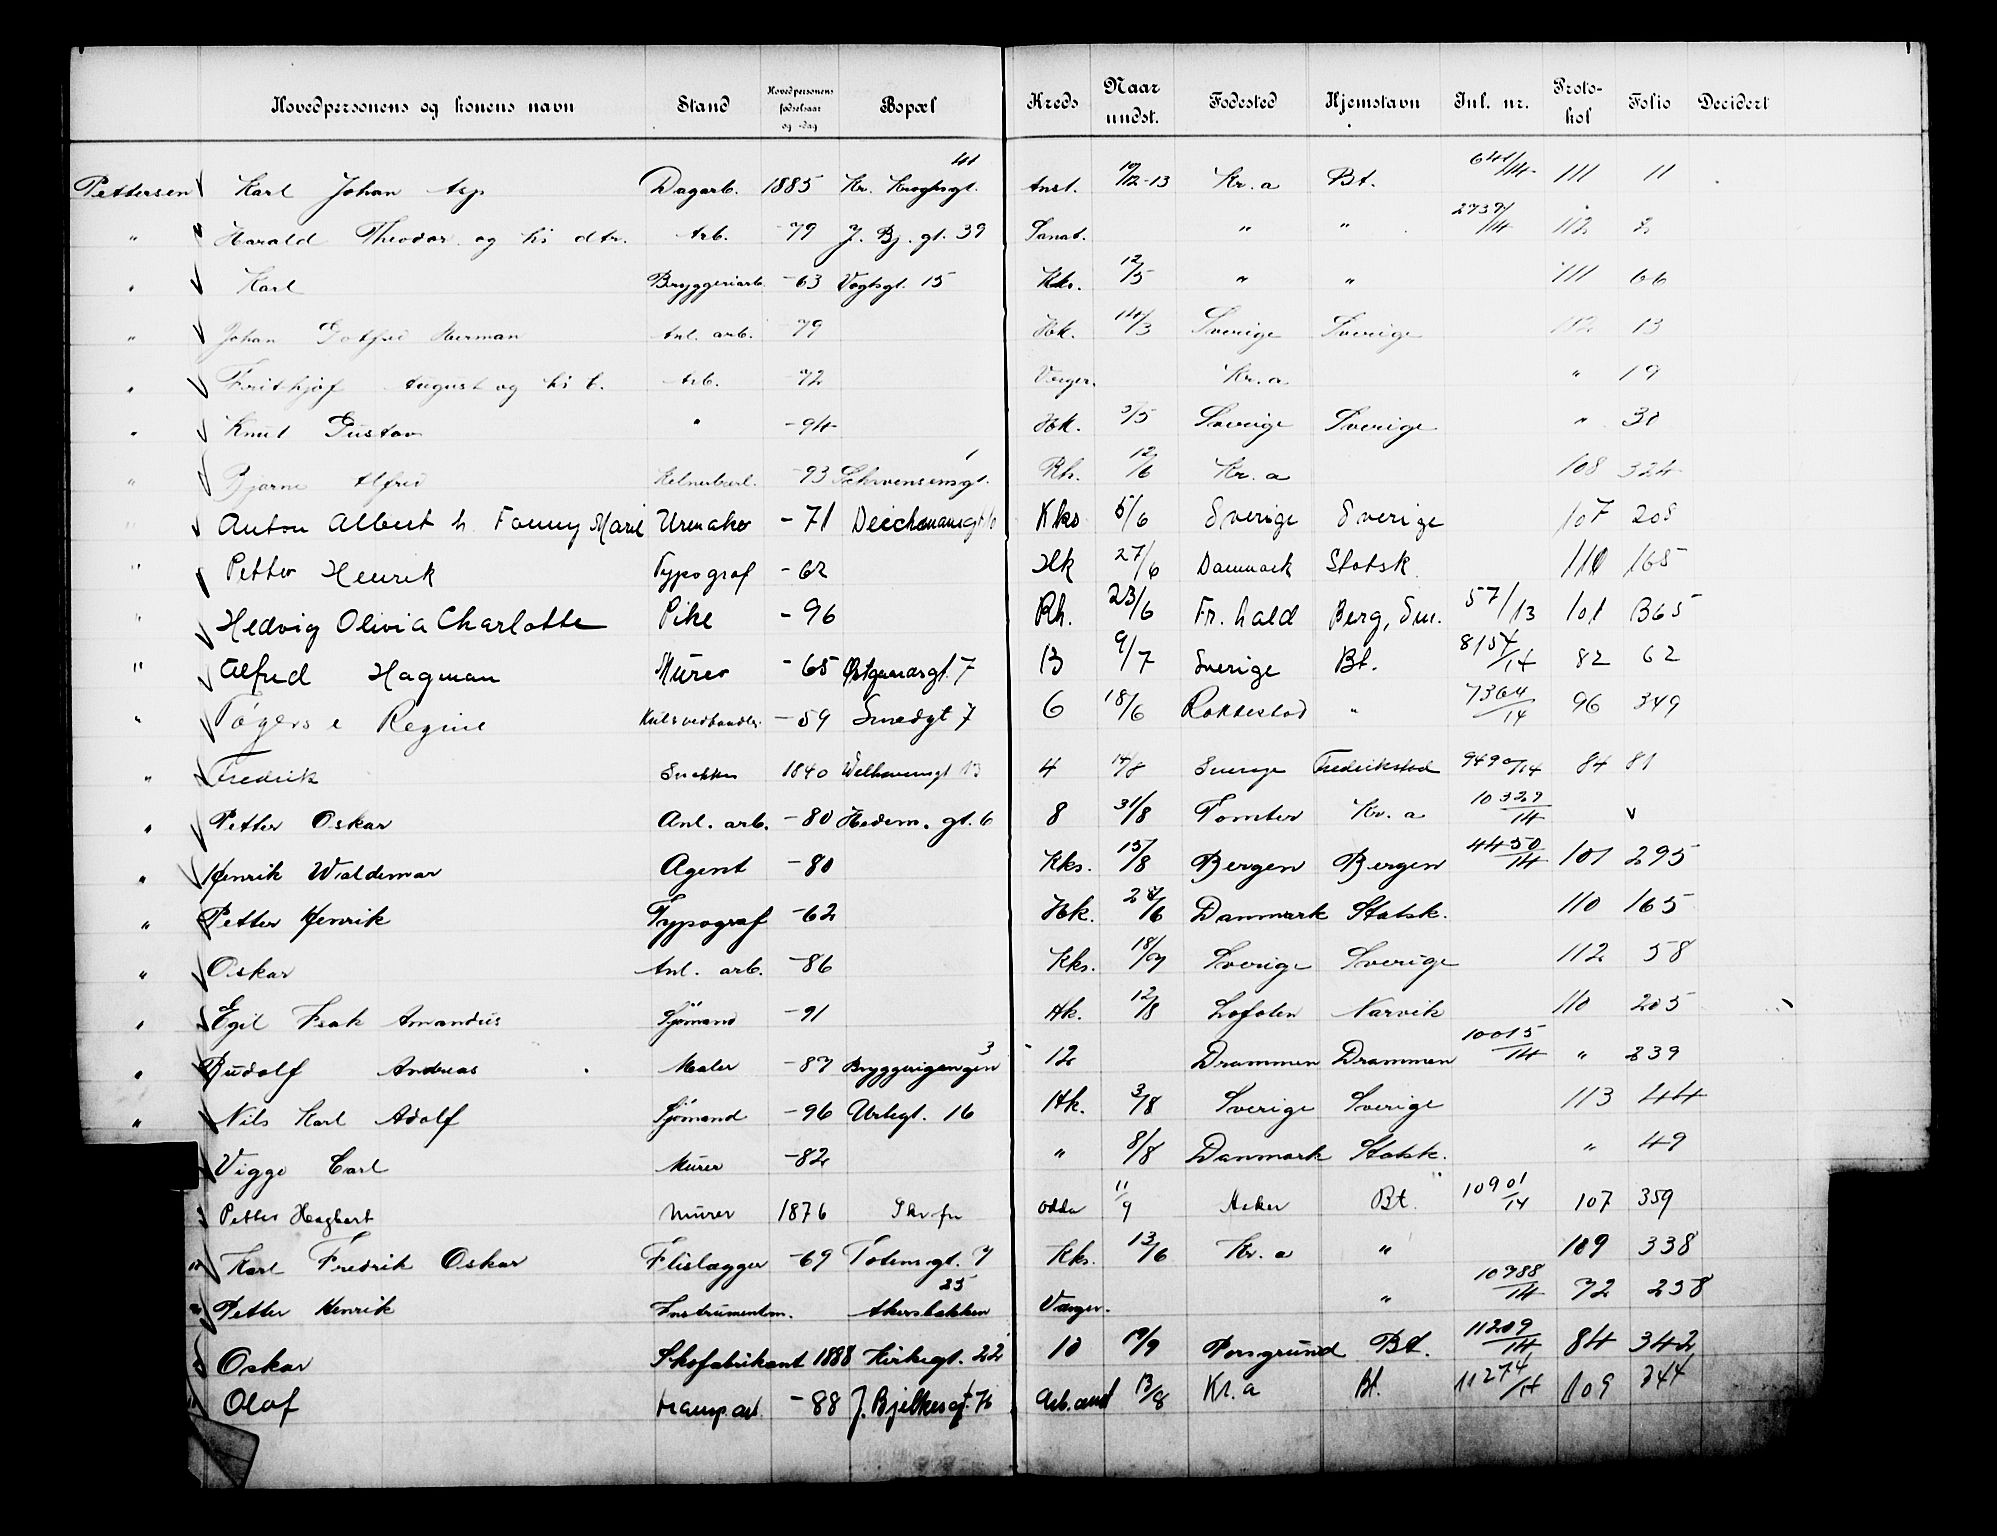 Hovedpersonens og konens navn Stand Hovedpersonens fødselsaar og -dag Bopæl Kreds Naar undst. Fødested Hjemstavn Inl. nr. Proto-kol Folio Decidert
Pettersen Karl Johan Asp Dagarb. 1885 Kr. Kroghsgt. 41 Anst. 10/12-13 Kr.a Bt. 641/14 111 11
" Harald Theodor og hs dtr. Arb. -79 J. Bj. gt. 39 Sanat. " " 2737/14 112 2
" Karl Bryggeriarb. -63 Vogtsgt. 15 Kks. 12/5 " " 111 66
" Johan Gotfred Herman Anl. arb. -79 Hk. 14/3 Sverige Sverige 112 13
" Frithjof August og hs b. Arb. -72 Værger. Kr.a " 19
" Knut Gustav " -94 Hk. 3/5 Sverige Sverige " 30
" Bjarne Alfred -93 Schwensensgt. 1 Rh. 12/6 Kr.a 108 324
" Anton Albert h. Fanny Marie Urmaker -71 Deichmansgt Kks 5/6 Sverige Sverige 107 208
" Petter Henrik Typograf -62 Hk 27/6 Danmark Statsk. 110 165
" Hedvig Olivia Charlotte Pike -96 Rh. 23/6 Fr.hald Berg, Sm. 57/13 101 365
" Alfred Hagman Murer -65 Østgaardsgt. 7 13 9/7 Sverige Bt. 8154/14 82 62
" Tøgers e Regine Kulsvedhandler -59 Smedgt 7 6 18/6 Rakkestad " 7364/14 96 349
" Fredrik Snekker 1840 Welhavensgt 13 4 14/8 Sverige Fredrikstad 9490/14 84 81
" Petter Oskar Anl. arb. -80 Hedem. gt. 6 8 31/8 Tomter Kr.a 10329/14 v
" Henrik Waldemar Agent -80 Kks. 15/8 Bergen Bergen 4450/14 101 295
" Petter Henrik Typograf -62 Hk. 27/6 Danmark Statsk. 110 165
" Oskar Anl. arb. -86 Kks. 18/7 Sverige Sverige 112 58
" Egil Isak Amandus Sjømand -91 Hk. 12/8 Lofoten Narvik 110 205
" Rudolf Andreas Maler -87 Bryggerigangen 3 12 Drammen Drammen 10015/14 " 239
" Nils Karl Adolf Sjømand -96 Urtegt. 16 Hk. 3/8 Sverige Sverige 113 44
Viggo Carl Murer -82 " 8/8 Danmark Statsk. " 49
Petter Hagbart Murer 1876 Odda 11/9 Aker Bt. 10901/14 107 359
" Karl Fredrik Oskar Flislægger -69 Totensgt. 7 Kks. 13/6 Kr.a " 109 338
" Petter Henrik Instrumentm. Akersbakken 25 Værger. " 10788/14 72 258
" Oskar Skofabrikant 1888 Kirkegt. 22 10 19/9 Porsgrund Bt. 11209/14 84 342
" Olaf -88 J. Bjelkesgt. Arb.anst 13/8 Kr.a Bt. 11274/14 109 344